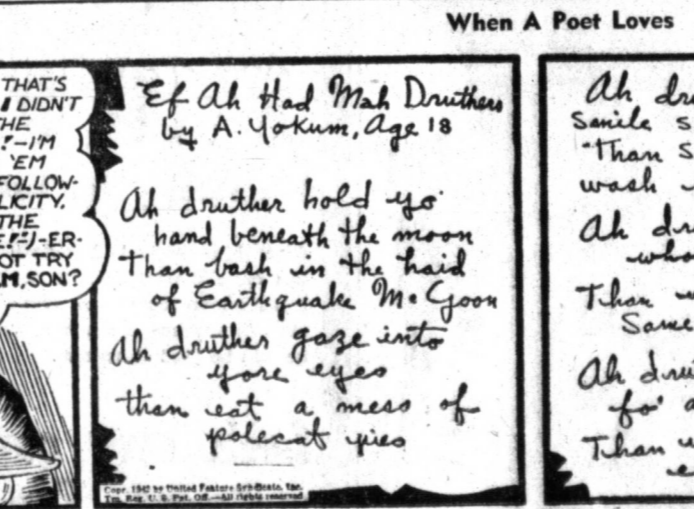 When A Poet Loves
THAT'S
I DIDN'T
HE
!-I'M
'EM
FOLLOW-
LICITY.
THE
E!!-)-ER-
OT TRY
M, SON?
Ef Ah Had Mah Druthers
by A. Yokum, Age 18
Ah druther hold yo'
hand beneath the moon
Than bash in the haid
of Earthquake McGoon
Ah druther gaze into
yore eyes
than eat a mess of
polecat pies
Copr. 1942 by United Feature Syndicate, Inc.
Tm. Reg. U. S. Pat. Off.—All rights reserved
Ah dru
Smile s
Than s
wash
Ah dru
who
Than
Same
Ah dru
fo' a
Than
e